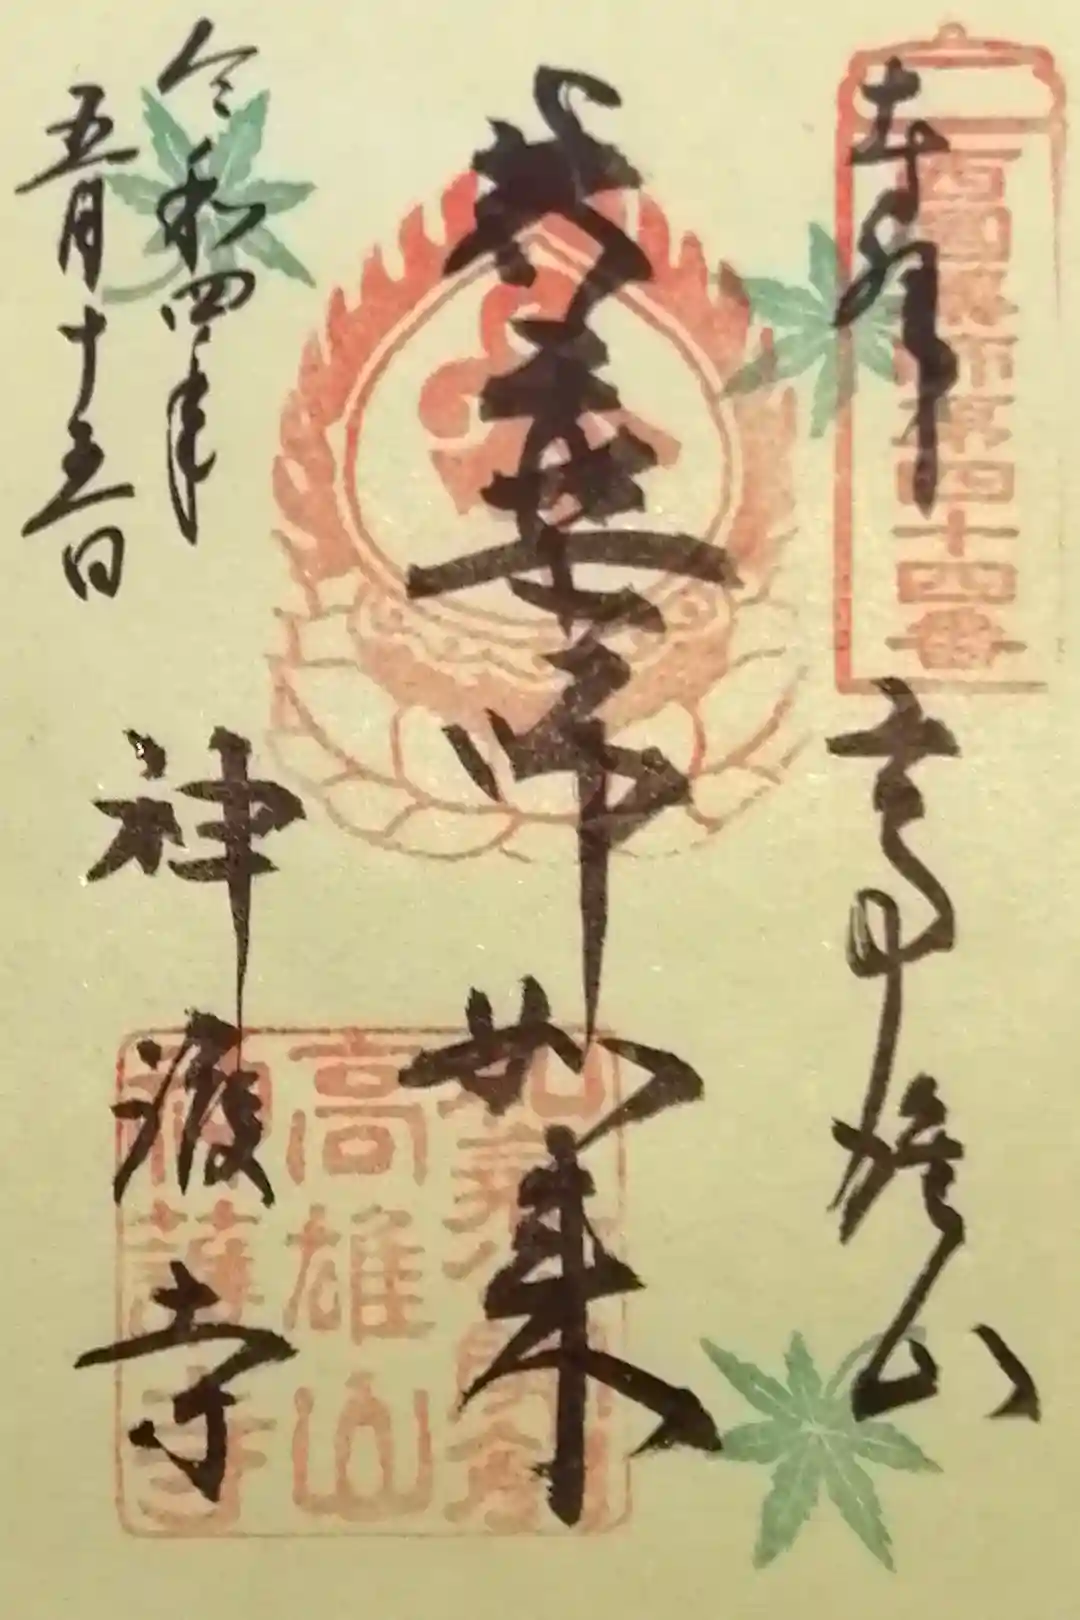 奉拝
西国薬師第四十四番
高雄山
薬師如来
令和四年
五月十五日
神護寺
高雄山
神護寺